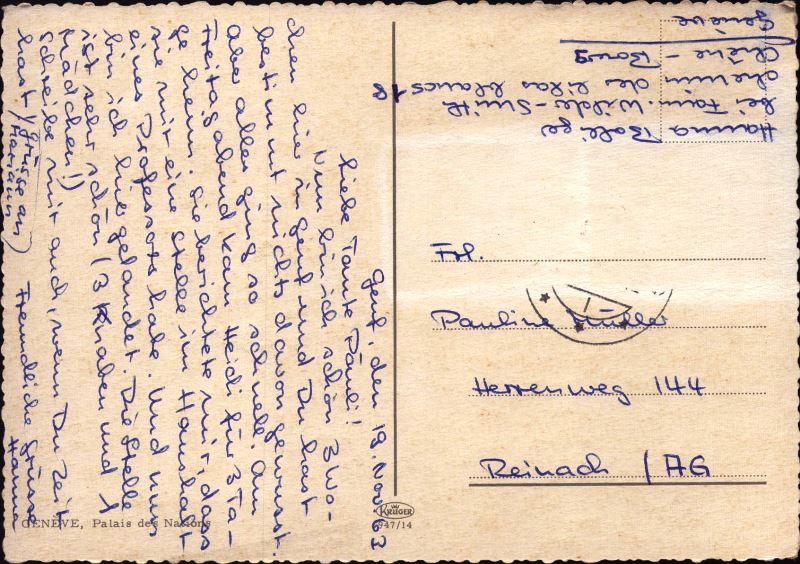 Genf, den 19. Nov. 63
Liebe Tante Pauli!
Nun bin ich schon 3 Wo-
chen hier in Genf und Du hast
bestimmt nichts davon gewusst.
Aber alles ging so schnell. Am
Freitagabend kam Heidi für 3 Ta-
ge heim. Sie berichtete mir, dass
sie mir eine Stelle im Haushalt
eines Professors habe. Und nun
bin ich hier gelandet. Die Stelle
ist sehr schön (3 Knaben und 1
Mädchen!)
Schreibe mir auch, wenn Du Zeit
hast. (Grüsse an
Mariann)
Freundliche Grüsse
Hanna
Hanna Bolliger
bei Fam. Wilder-Smith
chemin des lilas blancs 18
Chêne-Bourg
Genève
Frl.
Pauline Müller
Herrenweg 144
Reinach / AG
GENÈVE, Palais des Nations
KRÜGER
947/14